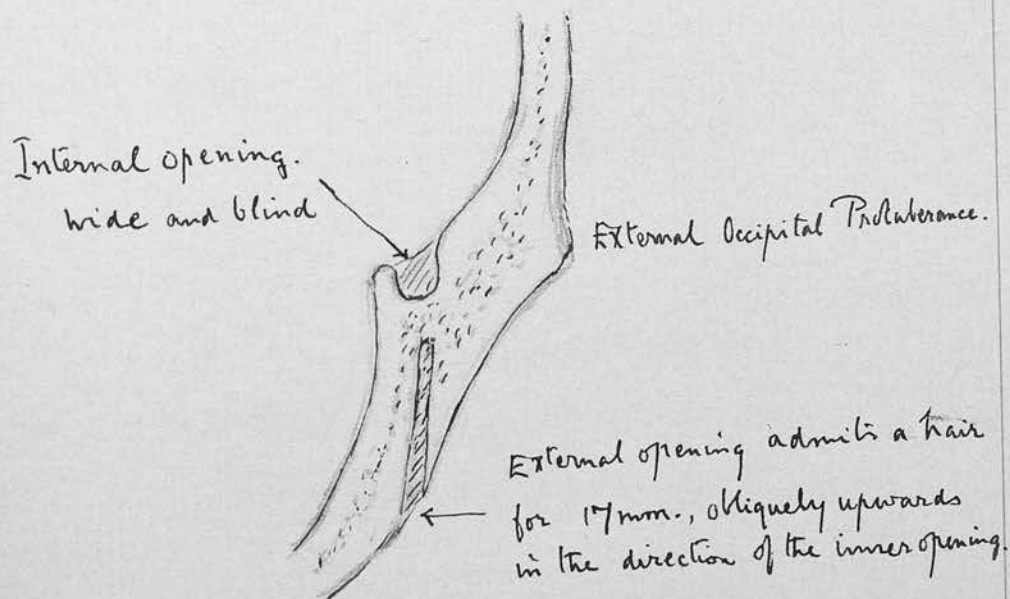 Internal opening.
wide and blind
External Occipital Protuberance.
External opening admits a hair
for 17mm., obliquely upwards
in the direction of the inner opening.